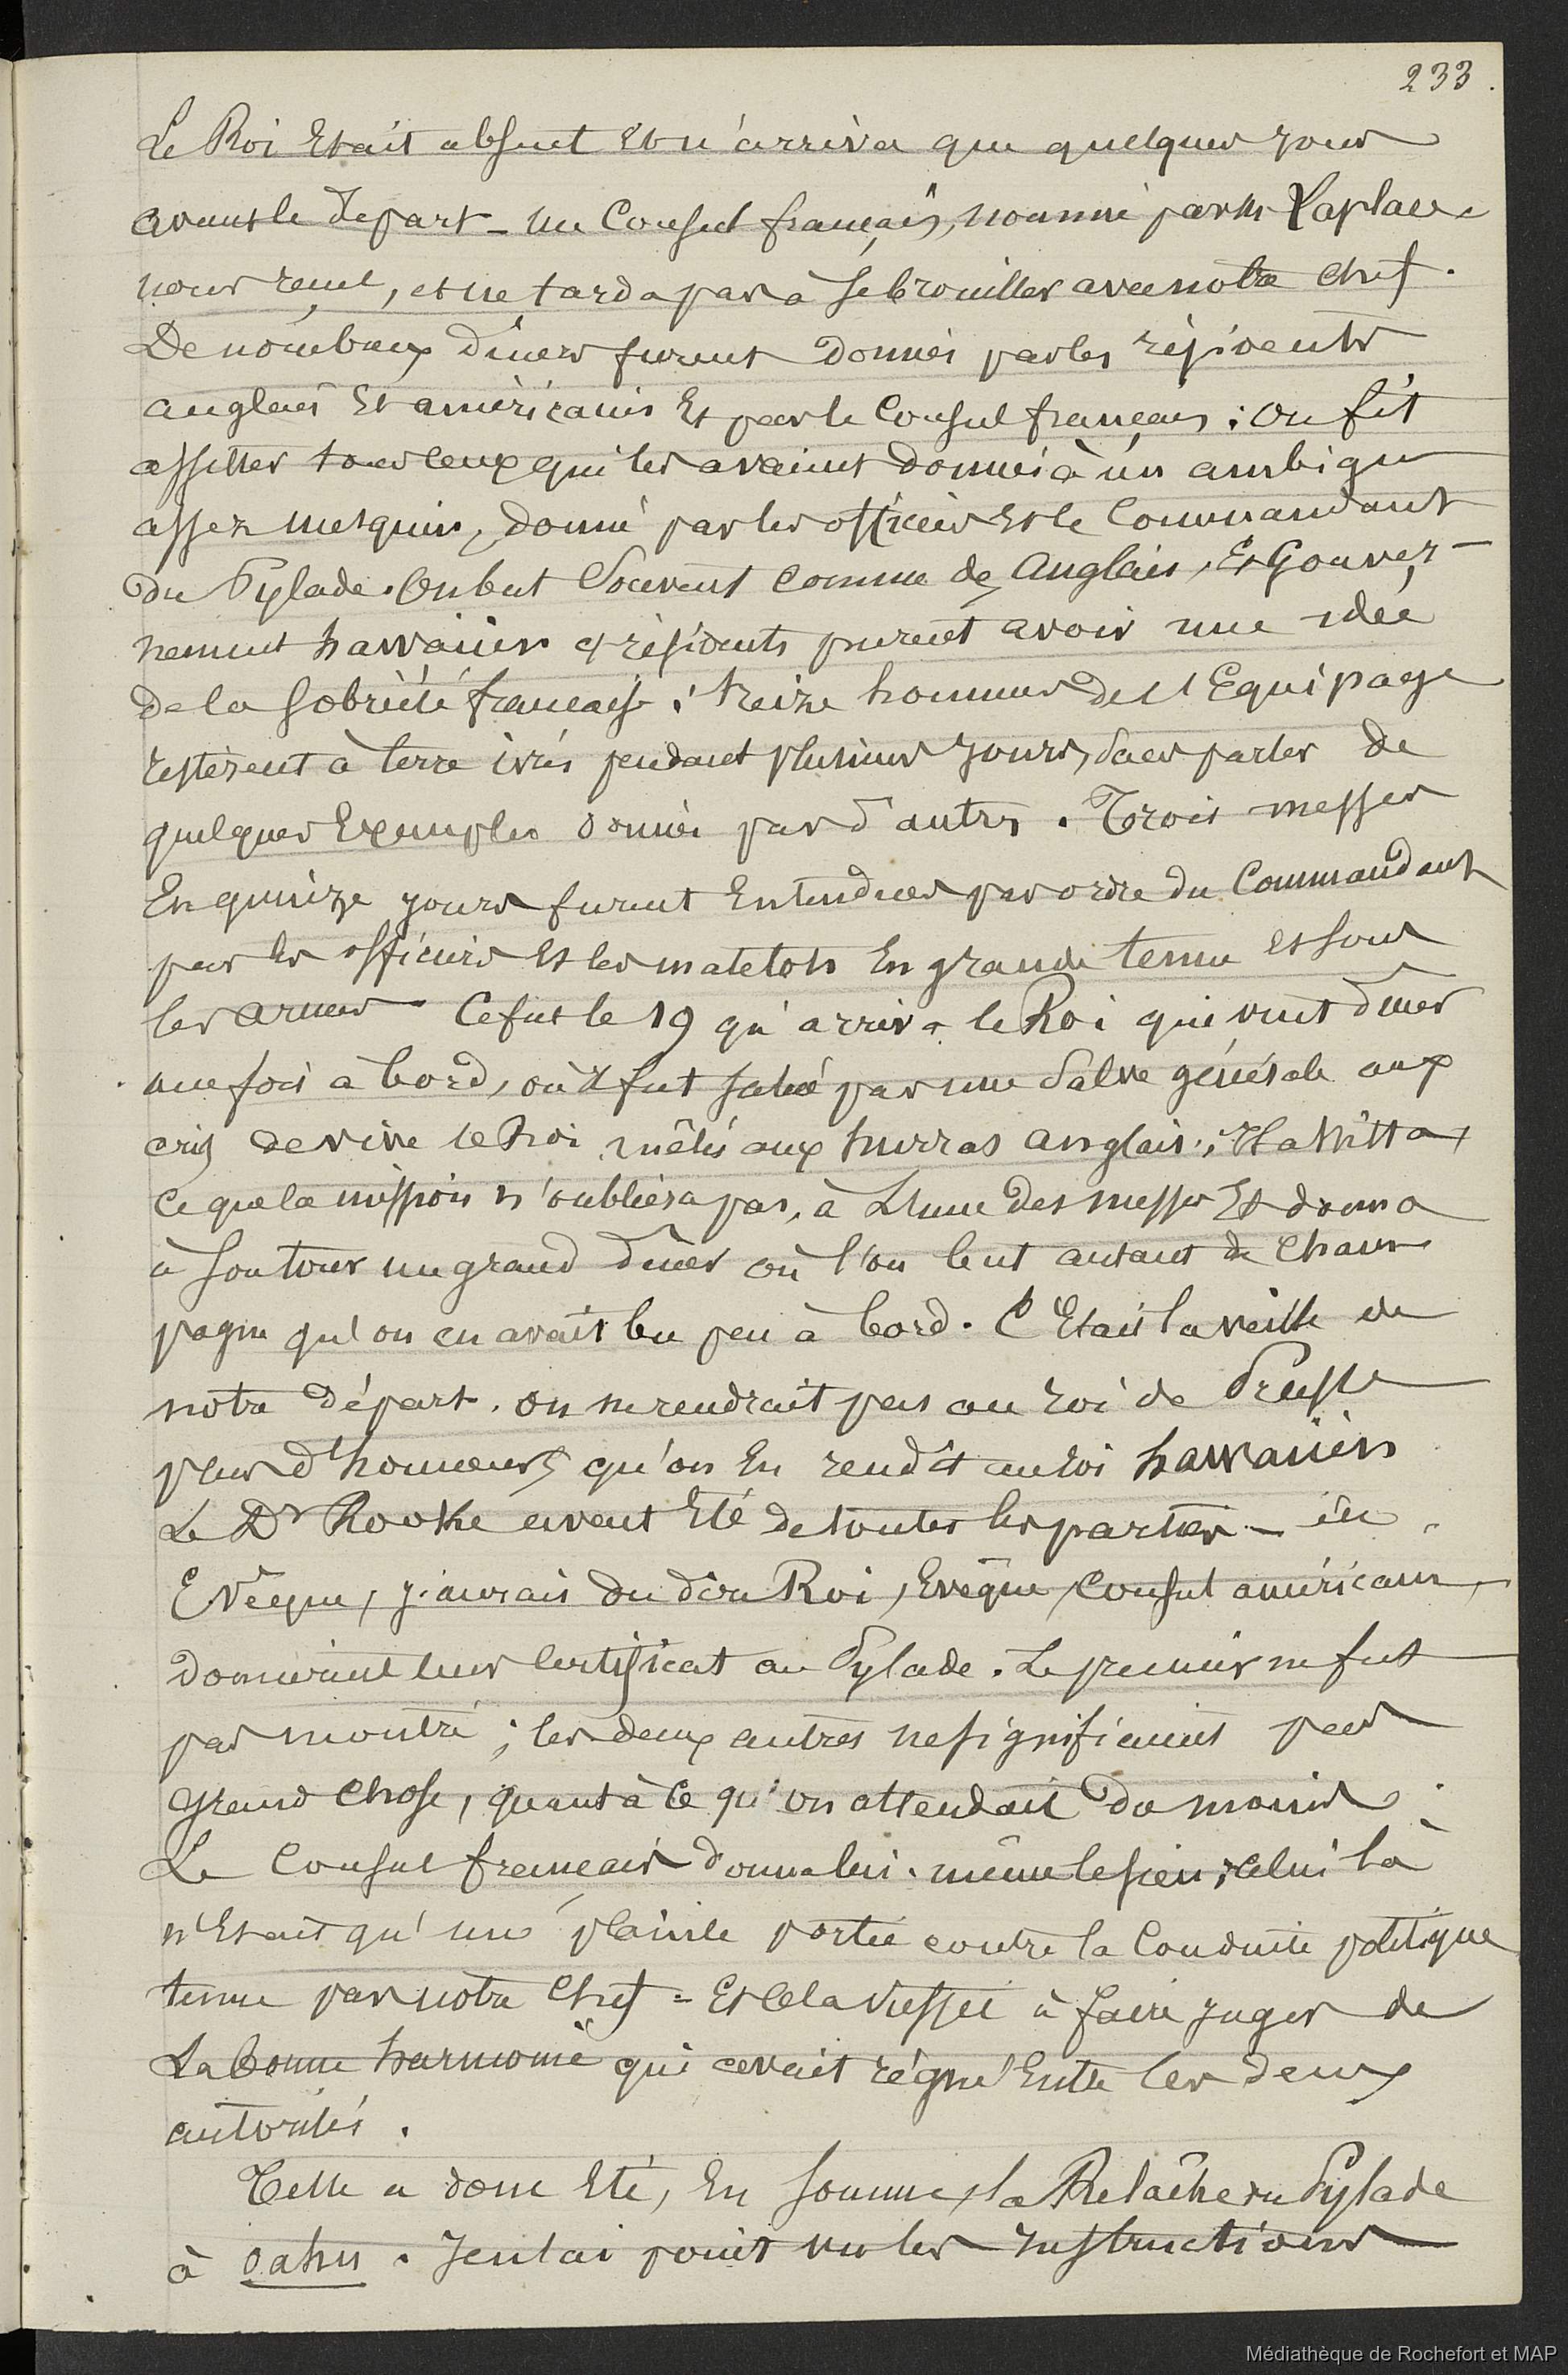 233.
Le Roi Etait absent Et n'arriva que quelques jours
avant le départ _ un Consul français, nommé par Mr Laplace
nous reçut, et ne tarda pas à se brouiller avec notre chef.
De nombreux diners furent donnés par les résidents
anglais Et américains Et par le Consul français : On fit
assister tous ceux qui les avaient donnés à un ambigu
assez mesquin, donné par les officiers Et le Commandant
du Pylade. On but Souvent comme des Anglais, Et Gouver-
nement hawaiien et résidents purent avoir une idée
de la Sobriété française : treize hommes de l'Equipage
restèrent à terre ivres pendant plusieurs jours, Sans parler de
quelques Exemples donnés par d'autres. Trois messes
En quinze jours furent Entendues par ordre du Commandant
par les officiers Et les matelots En grande tenue Et sous
les armes. Ce fut le 19 qu'arriva le Roi qui vint diner
une fois à bord, où il fut salué par une Salve générale aux
cris de vive le Roi mêlés aux hurras anglais ; Il assista,
ce que la mission n'oubliera pas, à L'une des messes Et donna
à Son tour un grand diner où l'on but autant de Cham
pagne qu'on en avait bu peu à bord. C'Etait la veille de
notre départ. on ne rendrait pas au roi de Prusse
plus d'honneurs qu'on En rendit au roi hawaiien
Le Dr Rooke avait Eté de toutes les parties _
Evêque, j'aurais du dire Roi, Evêque, Consul américain,
donnèrent leur Certificat au Pylade. Le premier ne fut
pas montré ; les deux autres ne signifiaient pas
Grand Chose, quant à ce qu'on attendait du moins.
Le Consul français donna lui-même le sien ; celui là
n'Etait qu'une plainte portée contre la Conduite politique
tenue par notre Chef = Et Cela à faire juger de
La bonne harmonie qui avait régné Entre les deux
autorités.
Telle a donc Eté, En Somme, la Relâche du Pylade
à Oahu. Je n'ai point vu les Instructions